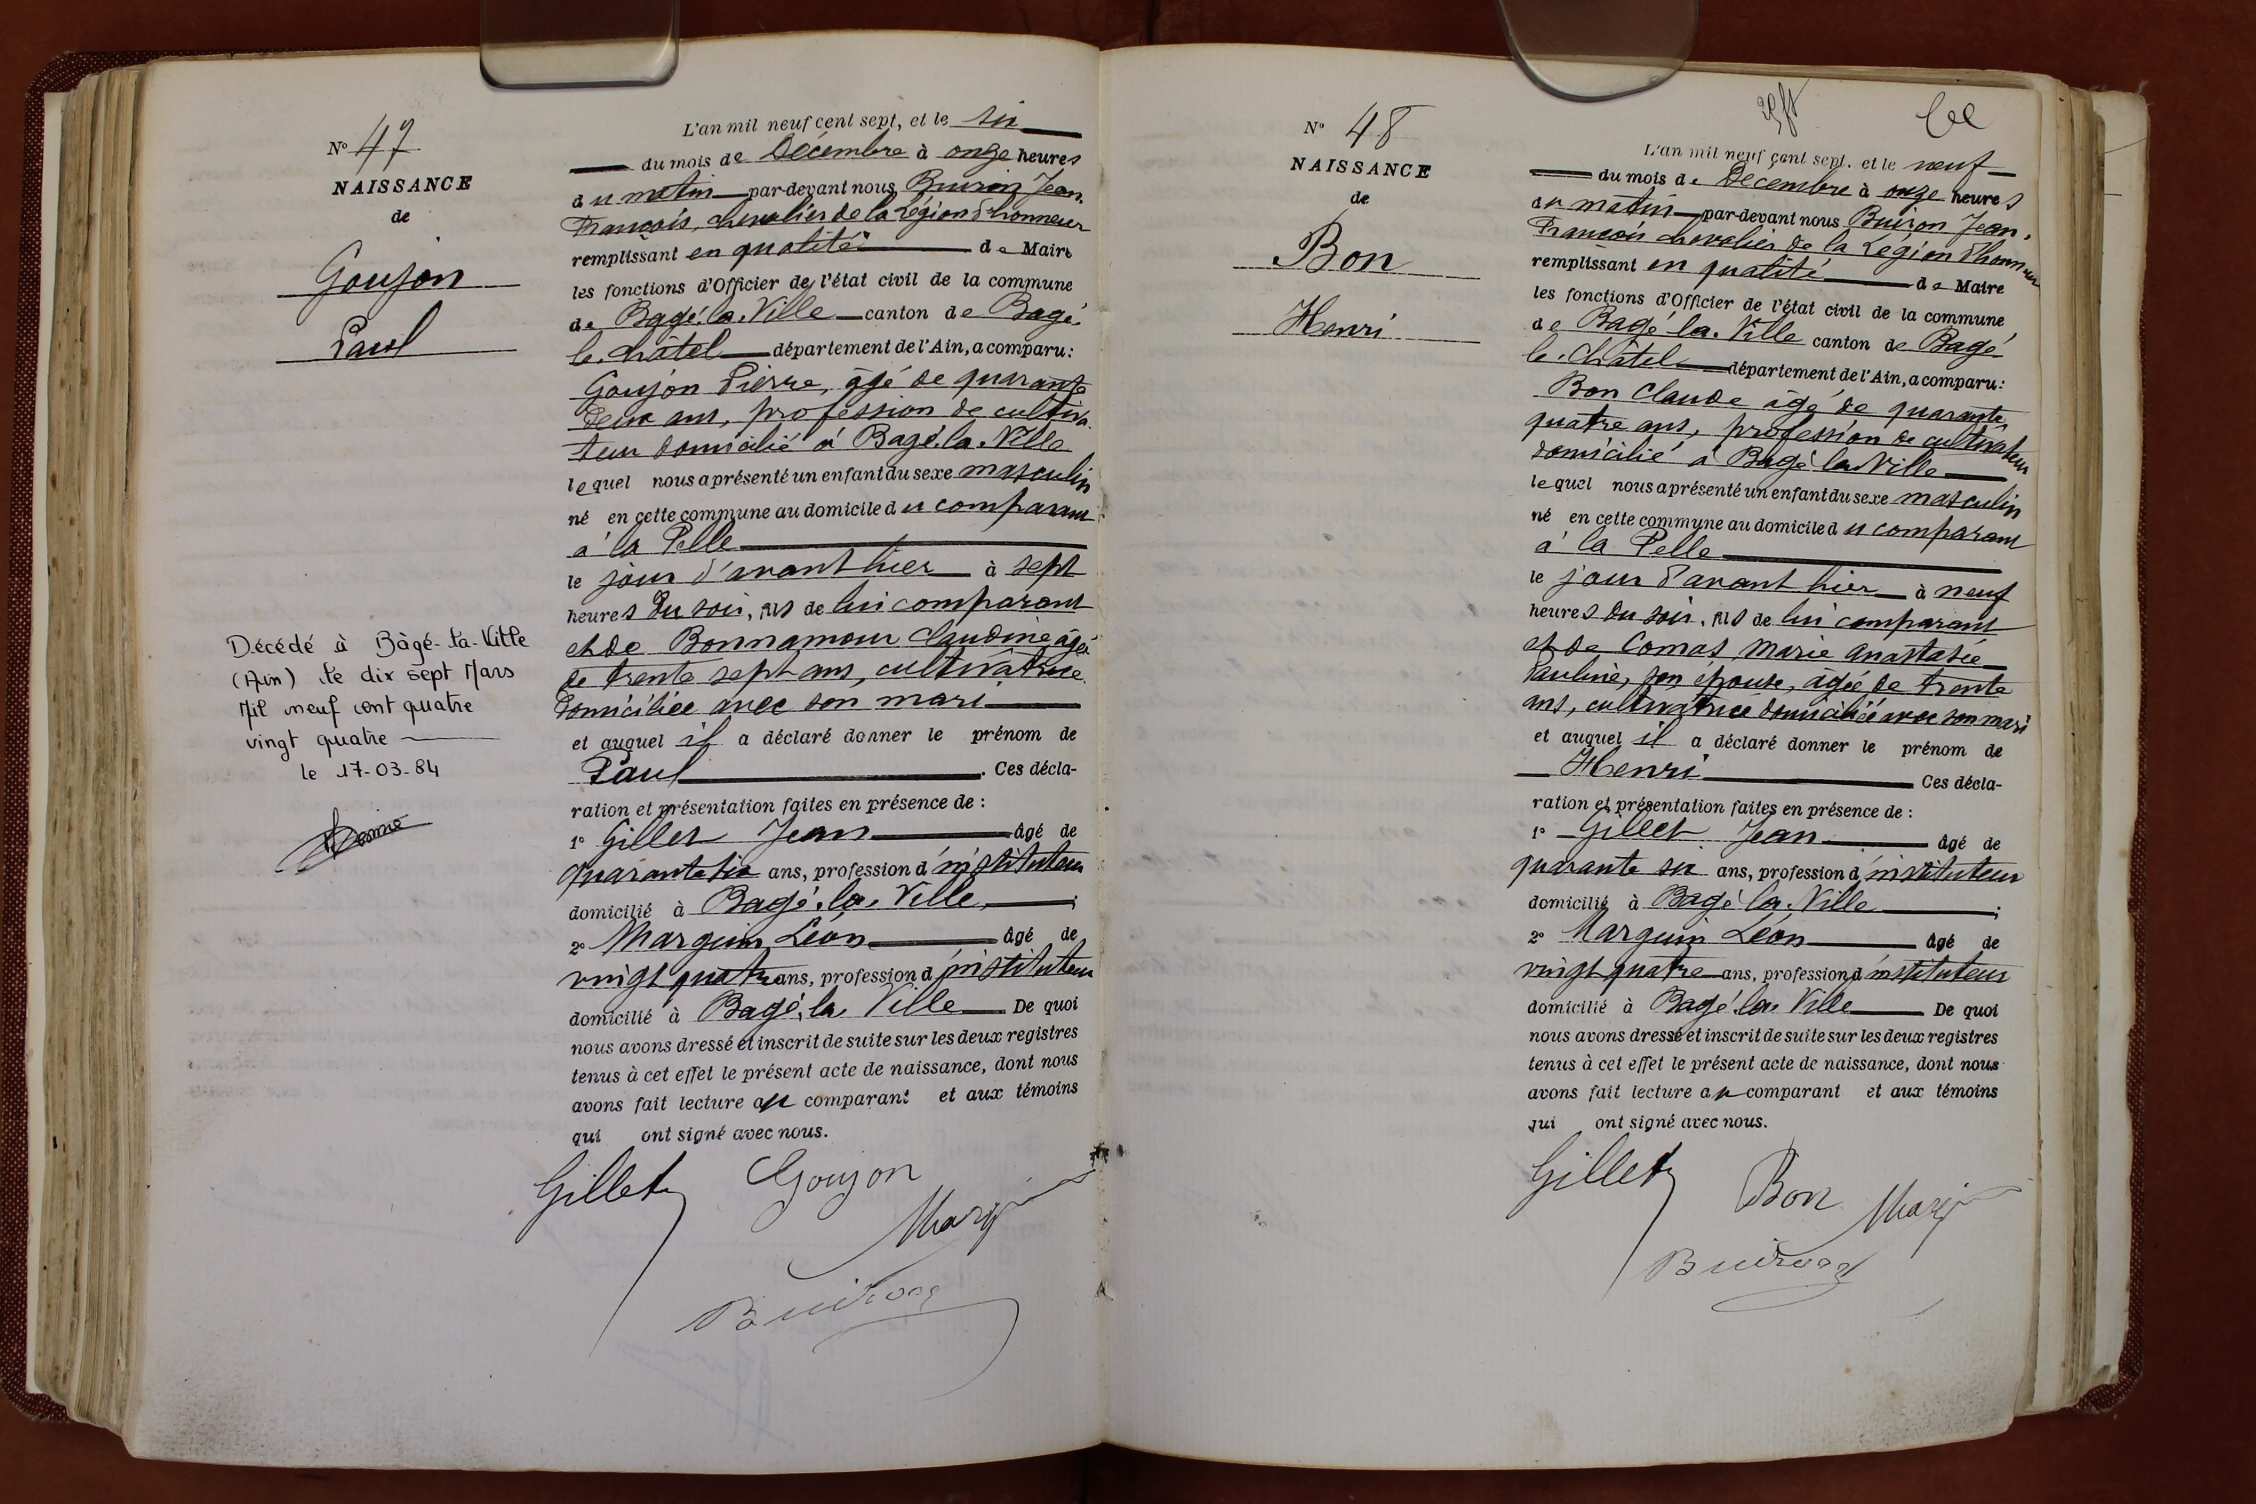 N° 47
NAISSANCE
de
Goujon
Paul
Décédé à Bâgé-la-Ville
(Ain) le dix sept Mars
Mil neuf cent quatre
vingt quatre
le 17-03-84
L'an mil neuf cent sept, et le six
du mois de Décembre à onze heures
du matin par-devant nous Buiron Jean.
François, chevalier de la Légion d'honneur
remplissant en qualité de Maire
les fonctions d'Officier de l'état civil de la commune
de Bagé.la.Ville canton de Bagé.
le.châtel département de l'Ain, a comparu:
Goujon Pierre, âgé de quarante
deux ans, profession de cultiva.
teur domicilié à Bagé.la.Ville
lequel nous a présenté un enfant du sexe masculin
né en cette commune au domicile du comparant
à la Pelle
le jour d'avant hier à sept
heures du soir, fils de lui comparant
et de Bonnamour Claudine âgée
de trente sept ans, cultivatrice
domiciliée avec son mari
et auquel il a déclaré donner le prénom de
Paul . Ces décla-
ration et présentation faites en présence de :
1° Gillet Jean âgé de
quarante six ans, profession d'instituteur
domicilié à Bagé.la.Ville ;
2° Marguin Léon âgé de
vingt quatre ans, profession d'instituteur
domicilié à Bagé.la.Ville De quoi
nous avons dressé et inscrit de suite sur les deux registres
tenus à cet effet le présent acte de naissance, dont nous
avons fait lecture au comparant et aux témoins
qui ont signé avec nous.
Gillet Goujon
Marguin
Buiron
N° 48
NAISSANCE
de
Bon
Henri
L'an mil neuf cent sept, et le neuf
du mois de Décembre à onze heures
du matin par-devant nous Buiron Jean.
François chevalier de la Légion d'honneur
remplissant en qualité de Maire
les fonctions d'Officier de l'état civil de la commune
de Bagé la.Ville canton de Bagé
le.Châtel département de l'Ain, a comparu:
Bon Claude âgé de quarante
quatre ans, profession de cultivateur
domicilié à Bagé la Ville
lequel nous a présenté un enfant du sexe masculin
né en cette commune au domicile du comparant
à la Pelle
le jour d'avant hier à neuf
heures du soir, fils de lui comparant
et de Comas Marie Anastasie
Pauline, son épouse, âgée de trente
ans, cultivatrice domiciliée avec son mari
et auquel il a déclaré donner le prénom de
Henri Ces décla-
ration et présentation faites en présence de :
1° Gillet Jean âgé de
quarante six ans, profession d'instituteur
domicilié à Bagé la.Ville ;
2° Marguin Léon âgé de
vingt quatre ans, profession d'instituteur
domicilié à Bagé.la.Ville De quoi
nous avons dressé et inscrit de suite sur les deux registres
tenus à cet effet le présent acte de naissance, dont nous
avons fait lecture au comparant et aux témoins
qui ont signé avec nous.
Gillet Bon Marguin
Buiron